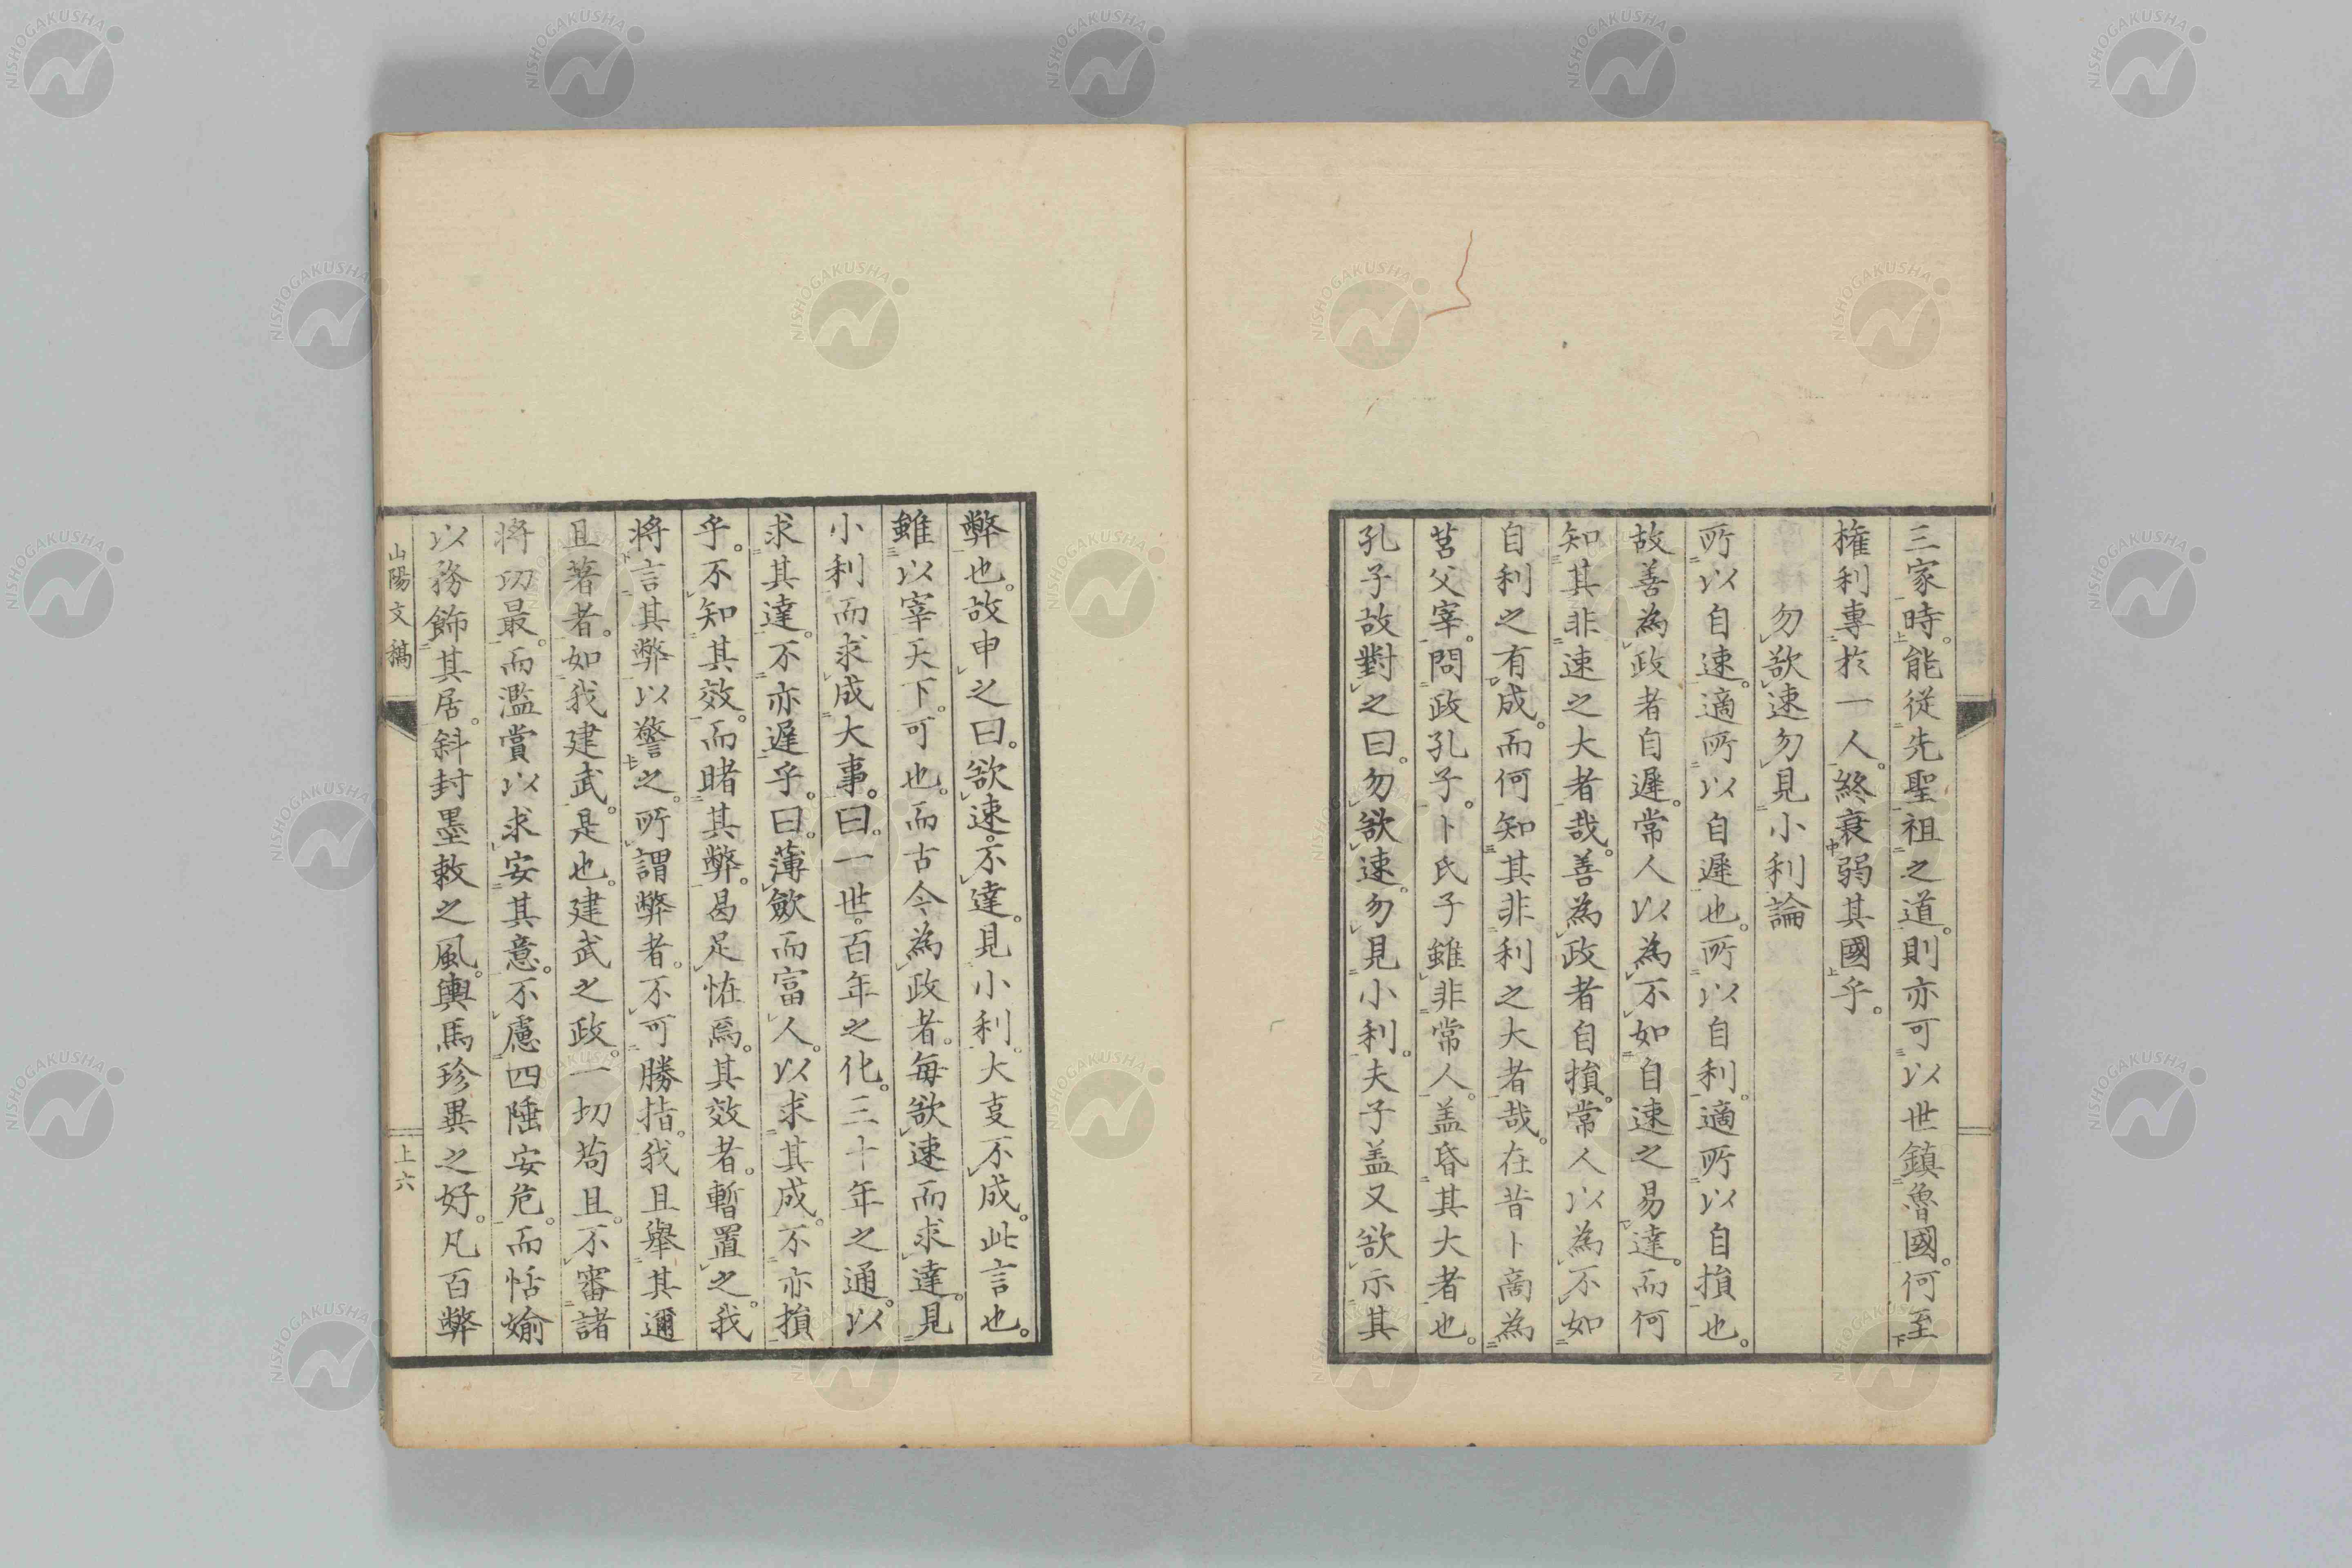 三家時。能從先聖祖之道。則亦可以世鎮魯國。何至
權利專於一人。終衰弱其國乎。
勿欲速勿見小利論
所以自速。適所以自遲也。所以自利。適所以自損也。
故善為政者自遲。常人以為不如自速之易達。而何
知其非速之大者哉。善為政者自損。常人以為不如
自利之有成。而何知其非利之大者哉。在昔卜商為
莒父宰。問政孔子。卜氏子雖非常人。盖昏其大者也。
孔子故對之曰。勿欲速。勿見小利。夫子盖又欲示其
弊也。故申之曰。欲速。不達。見小利。大叓不成。此言也。
雖以宰天下。可也。而古今為政者。每欲速而求達。見
小利而求成大事。曰。一世。百年之化。三十年之通。以
求其達。不亦遲乎。曰。薄斂而富人。以求其成。不亦損
乎。不知其效。而睹其弊。曷足恠焉。其效者。暫置之。我
將言其弊以警之。所謂弊者。不可勝指。我且舉其邇
且著者。如我建武。是也。建武之政。一切苟且。不審諸
将功最。而濫賞以求安其意。不慮四陲安危。而恬媮
以務飾其居。斜封墨敕之風。輿馬珍異之好。凡百弊
山陽文稿
上六
NISHOGAKUSHA